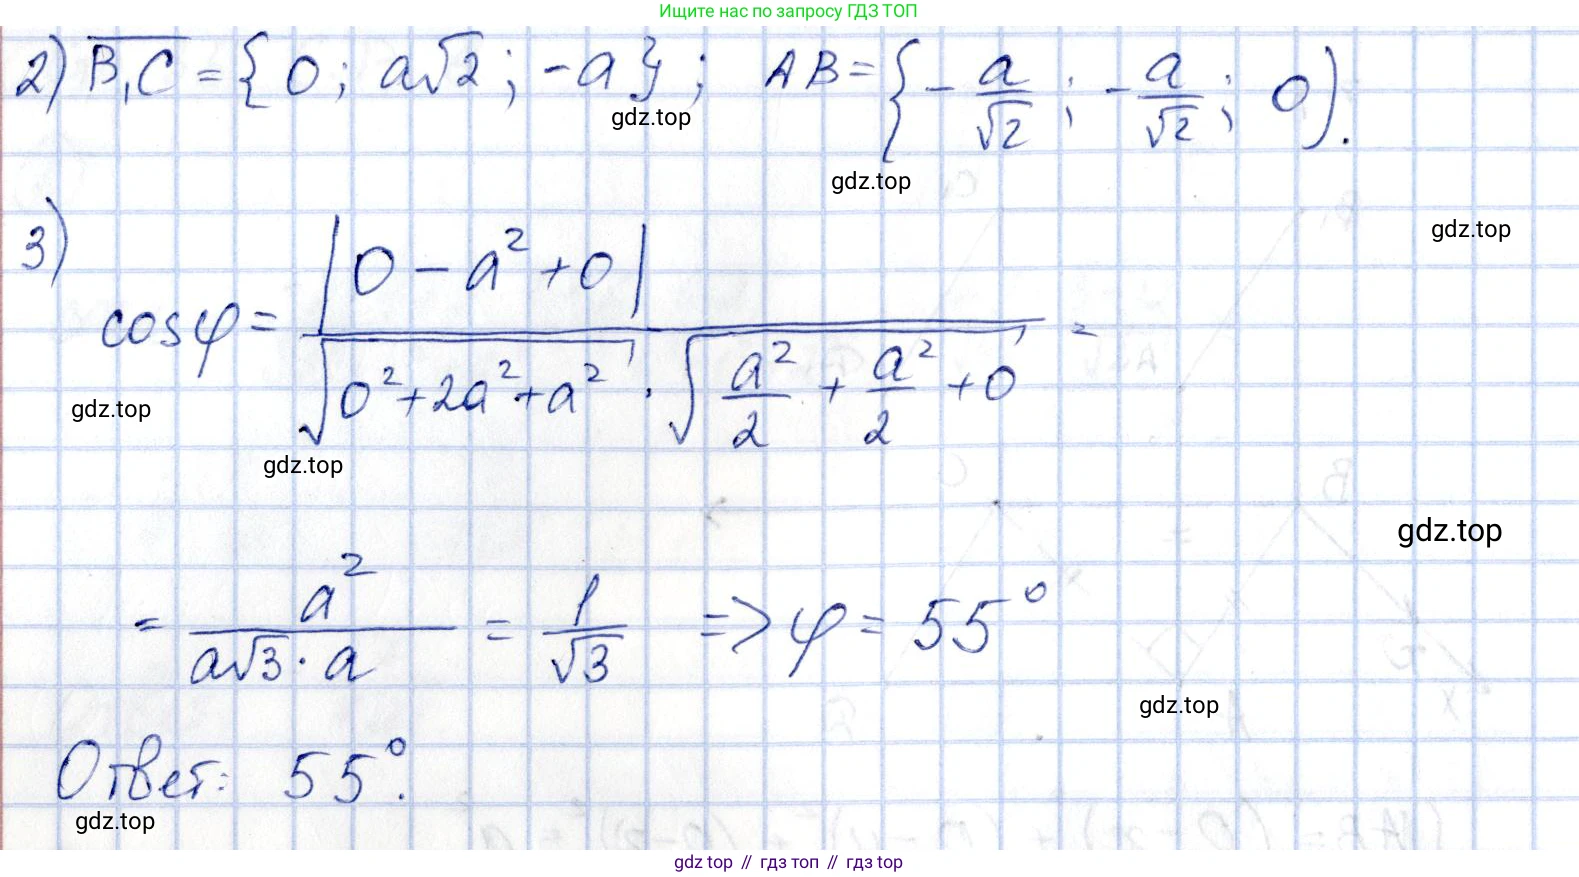 Ищите нас по запросу ГДЗ ТОП
2) B₁C = {0; a√2; -a}; AB = {-a/√2; -a/√2; 0).
gdz.top
gdz.top
3)
gdz.top
cosφ = |0 - a² + 0| / √(0² + 2a² + a²) · √(a²/2 + a²/2 + 0) =
gdz.top
gdz.top
gdz.top
= a² / a√3 · a = 1/√3 => φ = 55°
gdz.top
Ответ: 55°.
gdz.top
gdz top // гдз топ // гдз top